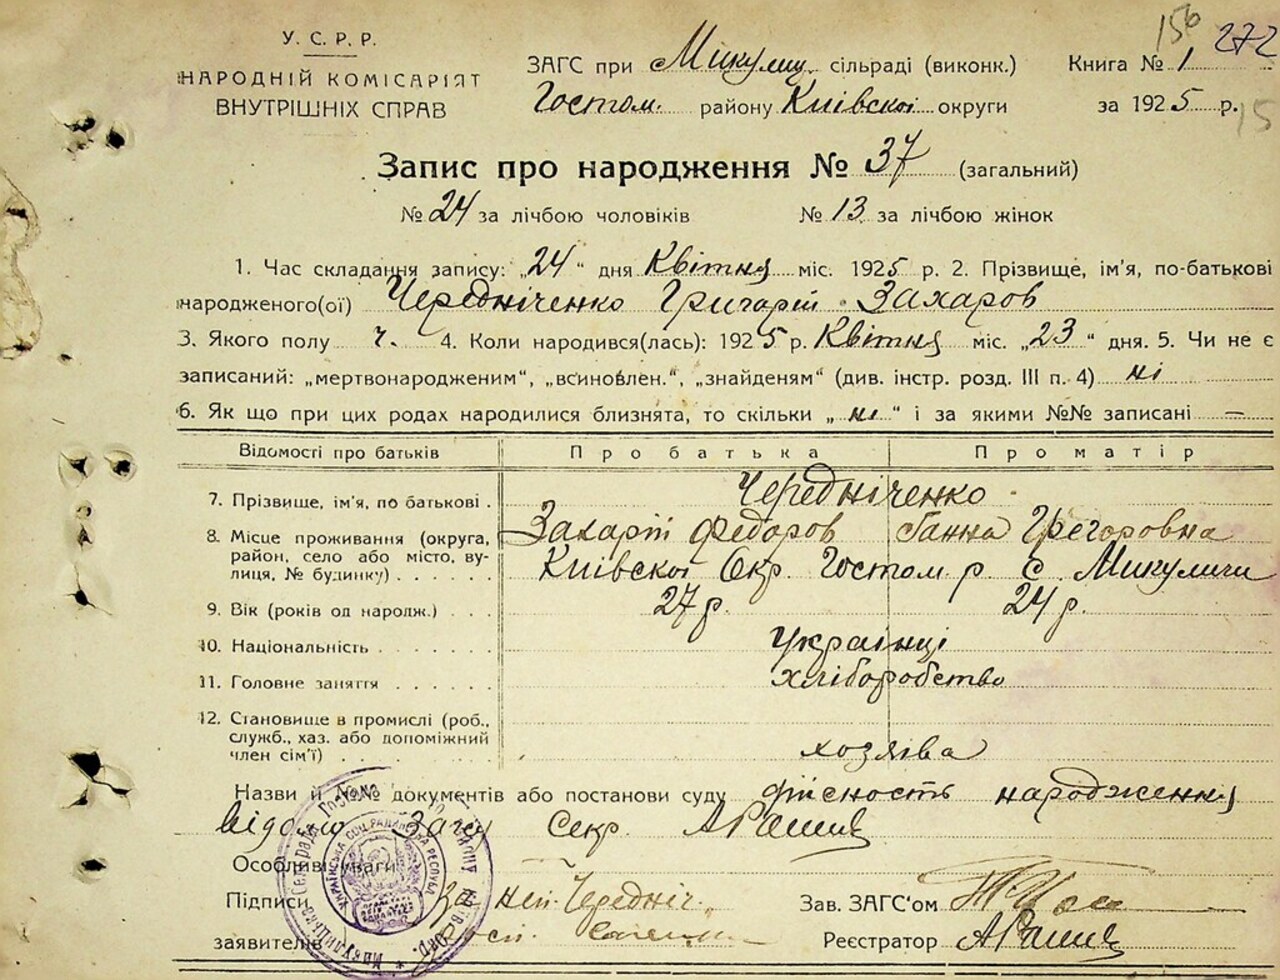 156 272
У. С. Р. Р.
НАРОДНІЙ КОМІСАРІЯТ
ВНУТРІШНІХ СПРАВ
ЗАГС при Микулиц. сільраді (виконк.) Книга № 1
Гостом. району Київскоі округи за 1925 р.
15
Запис про народження № 37 (загальний)
№ 24 за лічбою чоловіків № 13 за лічбою жінок
1. Час складання запису: „24“ дня Квітня міс. 1925 р. 2. Прізвище, ім'я, по-батькові
народженого(ої) Чередніченко Григорій Захаров
3. Якого полу ч. 4. Коли народився(лась): 1925 р. Квітня міс. „23“ дня. 5. Чи не є
записаний: „мертвонародженим“, „всиновлен.“, „знайденям“ (див. інстр. розд. III п. 4) ні
6. Як що при цих родах народилися близнята, то скільки „ні“ і за якими №№ записані —
Відомості про батьків Про батька Про матір
7. Прізвище, ім'я, по батькові . Чередніченко
Захарій Федоров Ганна Грегоровна
8. Місце проживання (округа,
район, село або місто, ву-
лиця, № будинку) . . . . . Київскоі Окр. Гостом. р. с. Микуличи
9. Вік (років од народж.) . . . 27 р. 24 р.
10. Національність . . . . . . Украінці
11. Головне заняття . . . . . . хліборобство
12. Становище в промислі (роб.,
служб., хаз. або допоміжний
член сім'ї) . . . . . . . хозяіва
Назви й №№ документів або постанови суду дійсность народження
відомо Загсу Секр.
Особливі уваги
Підписи За неп.Ередніч. Зав. ЗАГС'ом
заявителів Реєстратор
УКРАЇНСЬКА СОЦ. РАДЯНСЬКА РЕСПУБ.